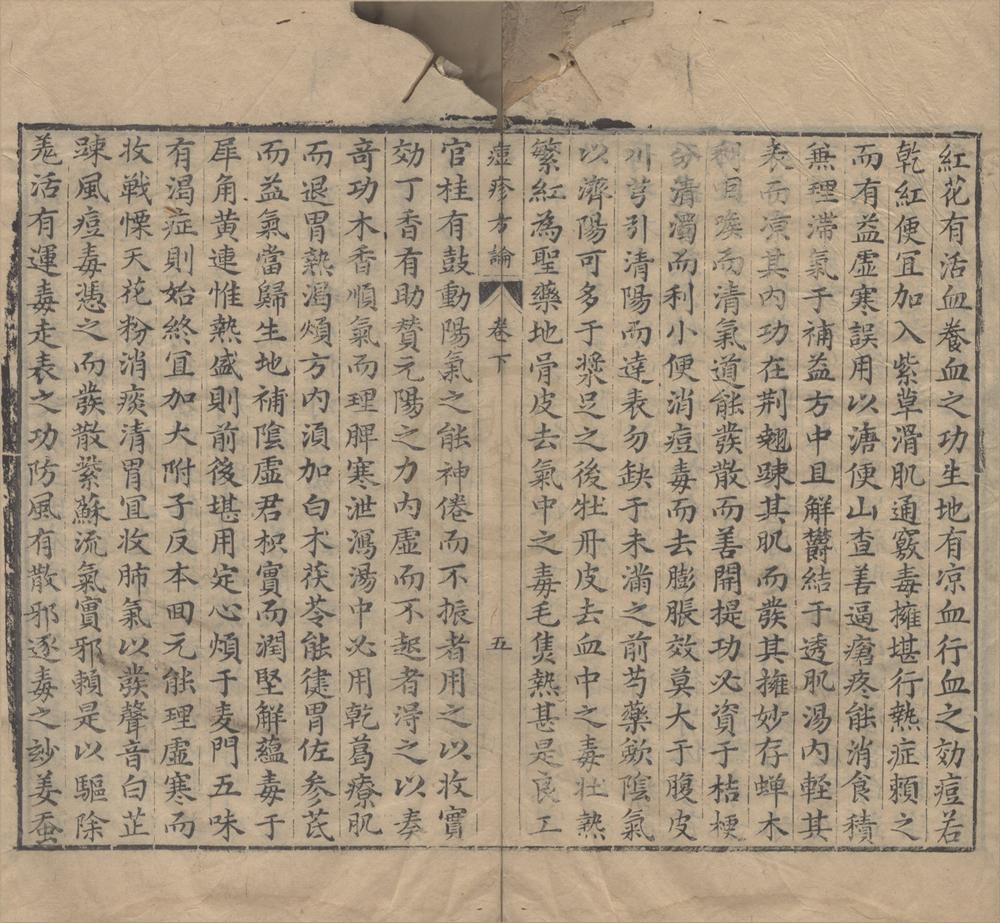 紅花有活血養血之功生地有凉血行血之効痘若
乾紅便冝加入紫草滑肌通竅毒擁堪行熱症頼之
而有益虛寒誤用以溏便山查善逼瘡疼能消食積
無理滞氣于補益方中且解欝結于透肌湯内輕其
表而凉其内功在荆翹踈其肌而發其擁妙存蝉木
利咽喉而清氣道能發散而善開提功必資于桔梗
分清濁而利小便消痘毒而去膨脹效莫大于腹皮
川芎引清陽而達表勿缺于未滿之前芍藥歛陰氣
以濟陽可多于漿足之後牡丹皮去血中之毒壮熱
繁紅為聖藥地骨皮去氣中之毒毛焦熱甚是良工
痘疹方論 卷下 五
官桂有鼓動陽氣之能神倦而不振者用之以收實
効丁香有助賛元陽之力内虛而不起者淂之以奏
竒功木香順氣而理脾寒泄瀉湯中必用乾葛療肌
而退胃熱渴煩方内湏加白术茯苓能健胃佐参芪
而益氣當歸生地補陰虛君枳實而潤堅解蘊毒于
犀角黄連惟熱盛則前後堪用定心煩于麦門五味
有渴症則始終冝加大附子反本囬元能理虛寒而
收戦慄天花粉消痰清胃冝收肺氣以發聲音白芷
踈風痘毒慿之而發散紫蘇流氣實邪頼是以驅除
羗活有運毒走表之功防風有散邪逐毒之玅姜蚕